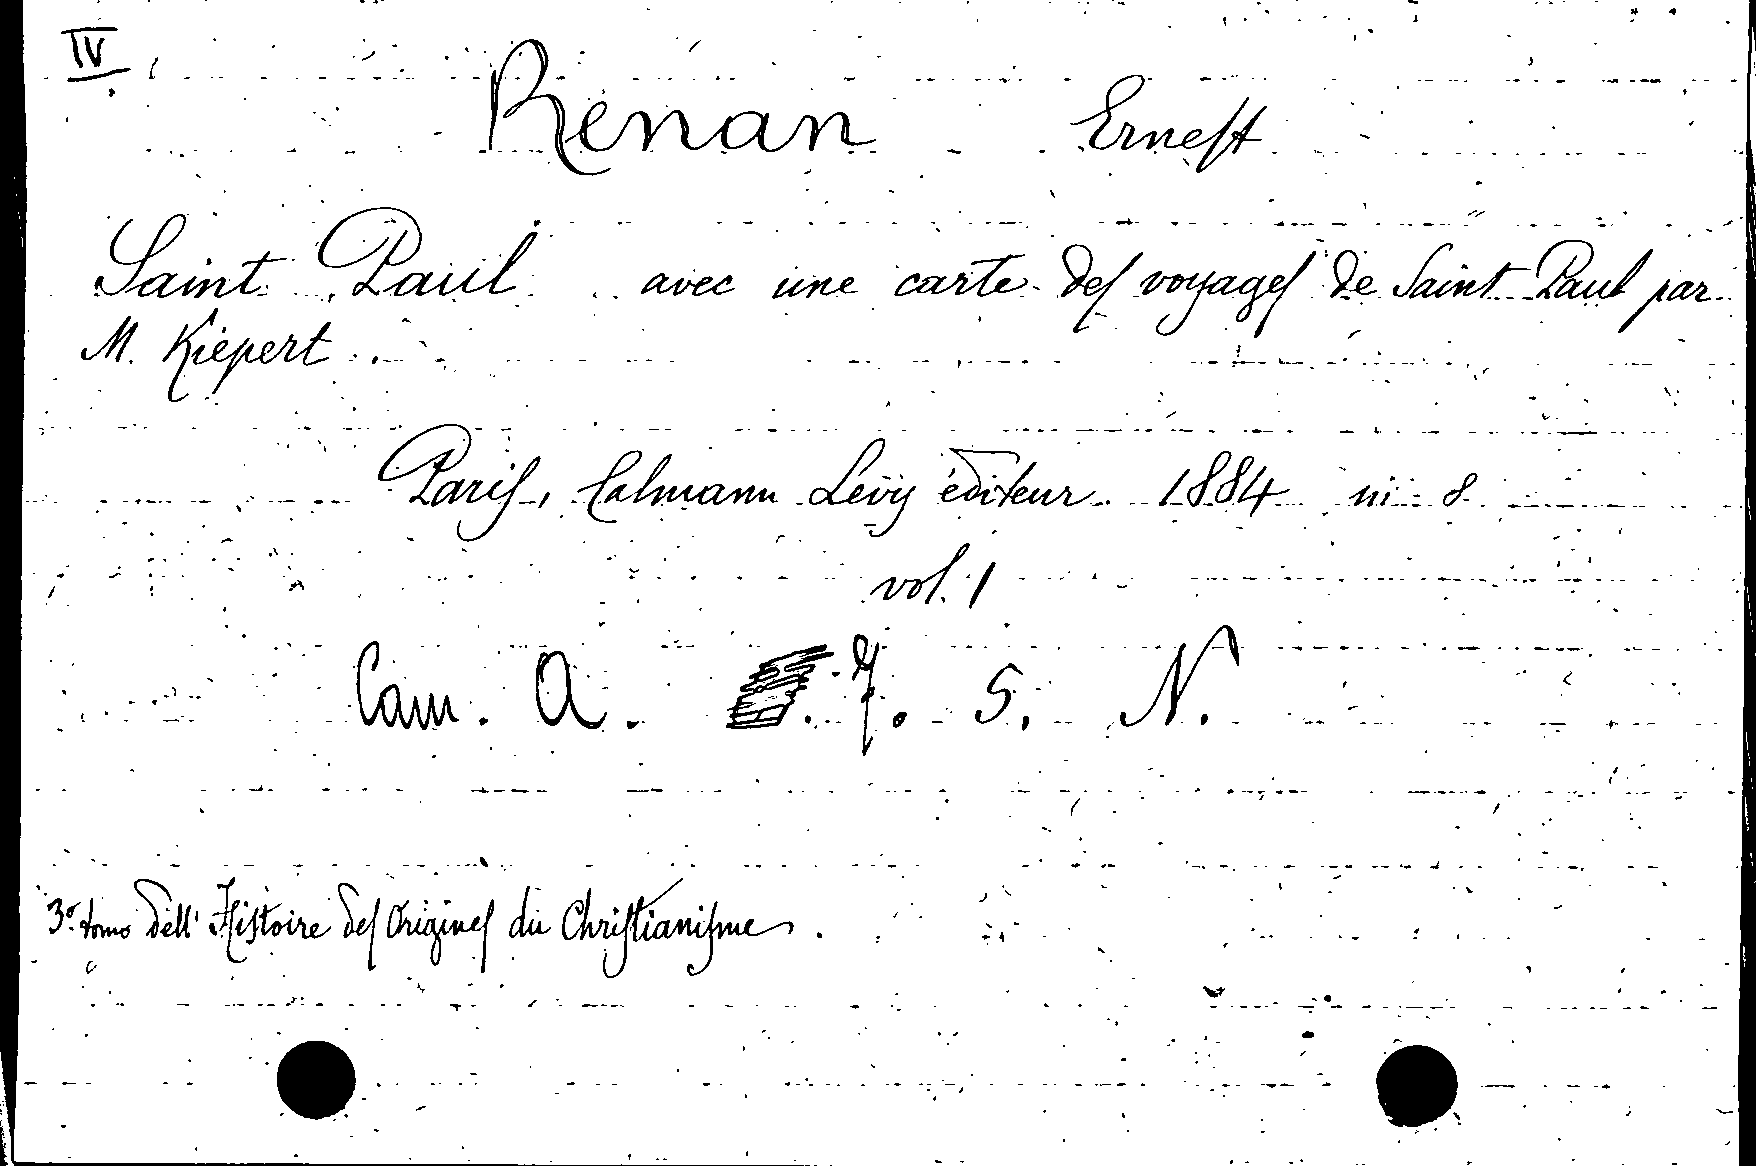 IV
Renan Ernest
Saint Paul avec une carte des voyages de Saint Paul par
M. Kiepert.
Paris, Calmann Lévy éditeur. 1884 in 8
vol. 1
Cam. A. 7. S. N.
3º tomo dell' Histoire des Origines du Christianisme.